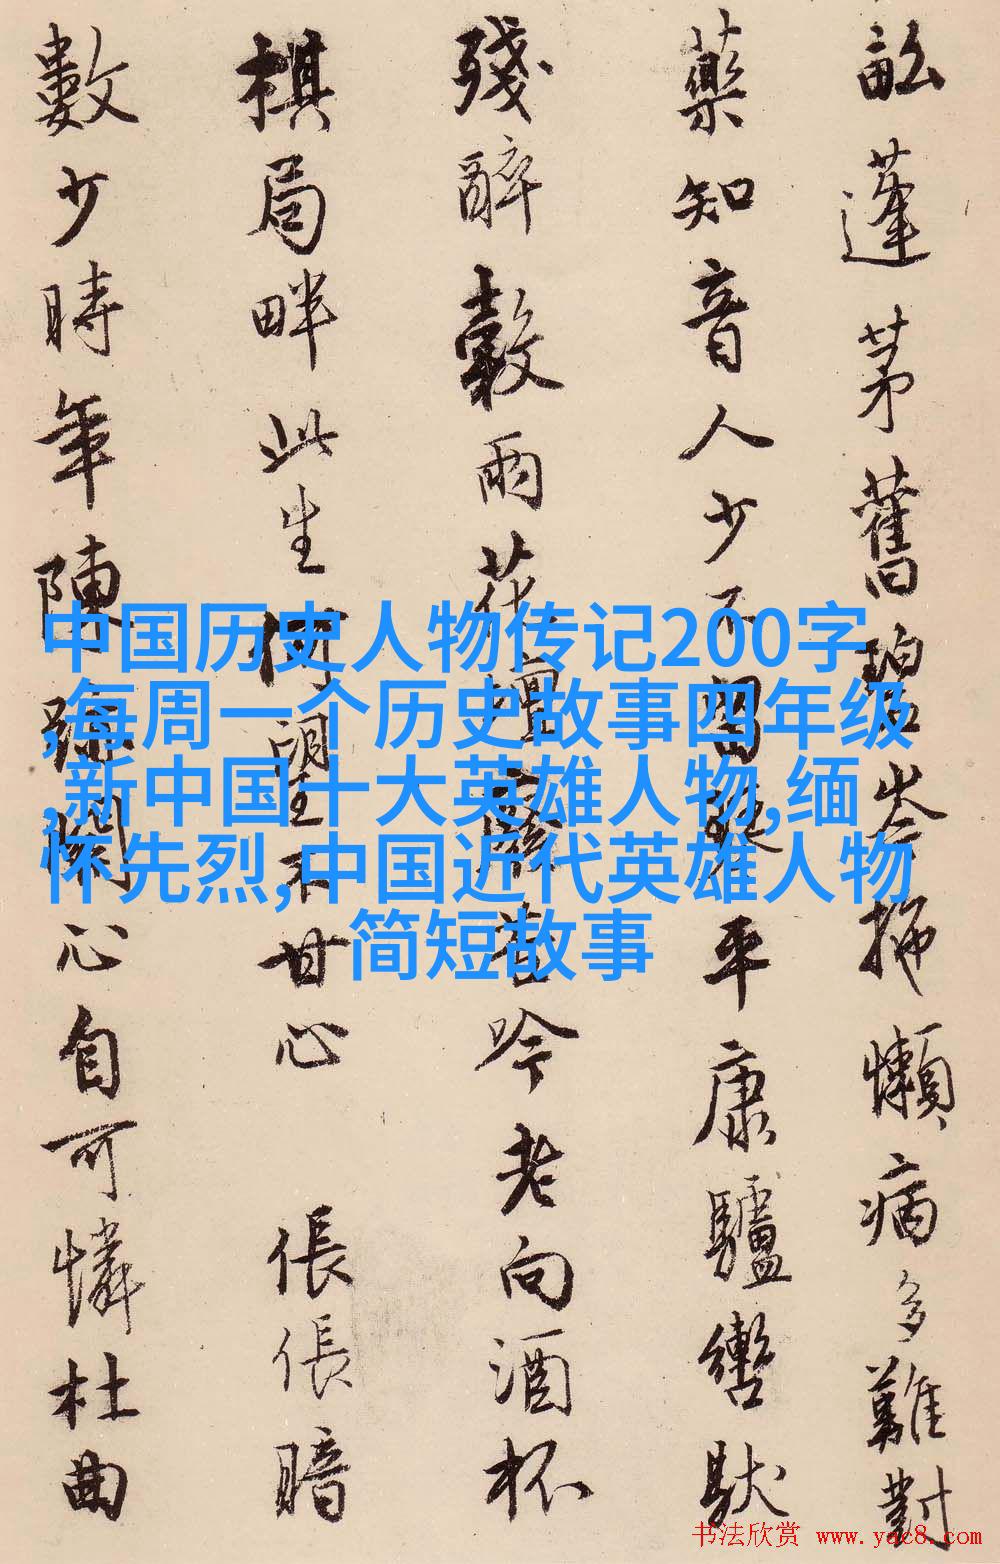 訟蓬茅舊碧岑拖懶病多難對
藥知音人少不平康驢轡馱
殘醉轂雨花壇昔吟今老向酒杯
棋局畔此生何望不甘心 倀倀暗
數少時年陳跡闌心自可憐杜曲
中国历史人物传记200字
,每周一个历史故事四年级
,新中国十大英雄人物,缅
怀先烈,中国近代英雄人物
简短故事
书法欣赏 www.yac8.com